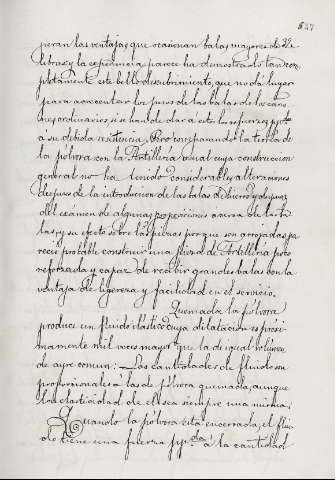 527
peran las ventajas que ocasionan balas mayores de 32
libras; y la experiencia parece ha demostrado tan com
pletamente este bello descubrimiento, que no dá lugar
para acrecentar los pesos de las balas de los caño
nes ordinarios, si se han de dar a estos los refuerzos pptes
a su debida resistencia. Pero comparando la teoria de
la pólvora con la Artillería usual cuya construccion
general no ha tenido considerables alteraciones
despues de la introduccion de las balas de hierro y despues
del examen de algunas proporciones acerca de las ba
las y su efecto sobre las piezas por que son arrojadas pa
recio probable construir una pieza de Artillería poco
reforzada y capaz de recibir grandes balas con la
ventaja de ligereza y facilidad en el servicio.
Quemada la pólvora
produce un fluido elastico cuya dilatacion es prosi
mamente mil veces mayor que la de igual volumen
de ayre comun: Las cantidades de fluido son
proporcionales á las de pólvora quemada, aunque
la elasticidad de el sea siempre una misma;
Quando la pólvora está encerrada, el flui
do tiene una fuerza ppdla á la cantidad